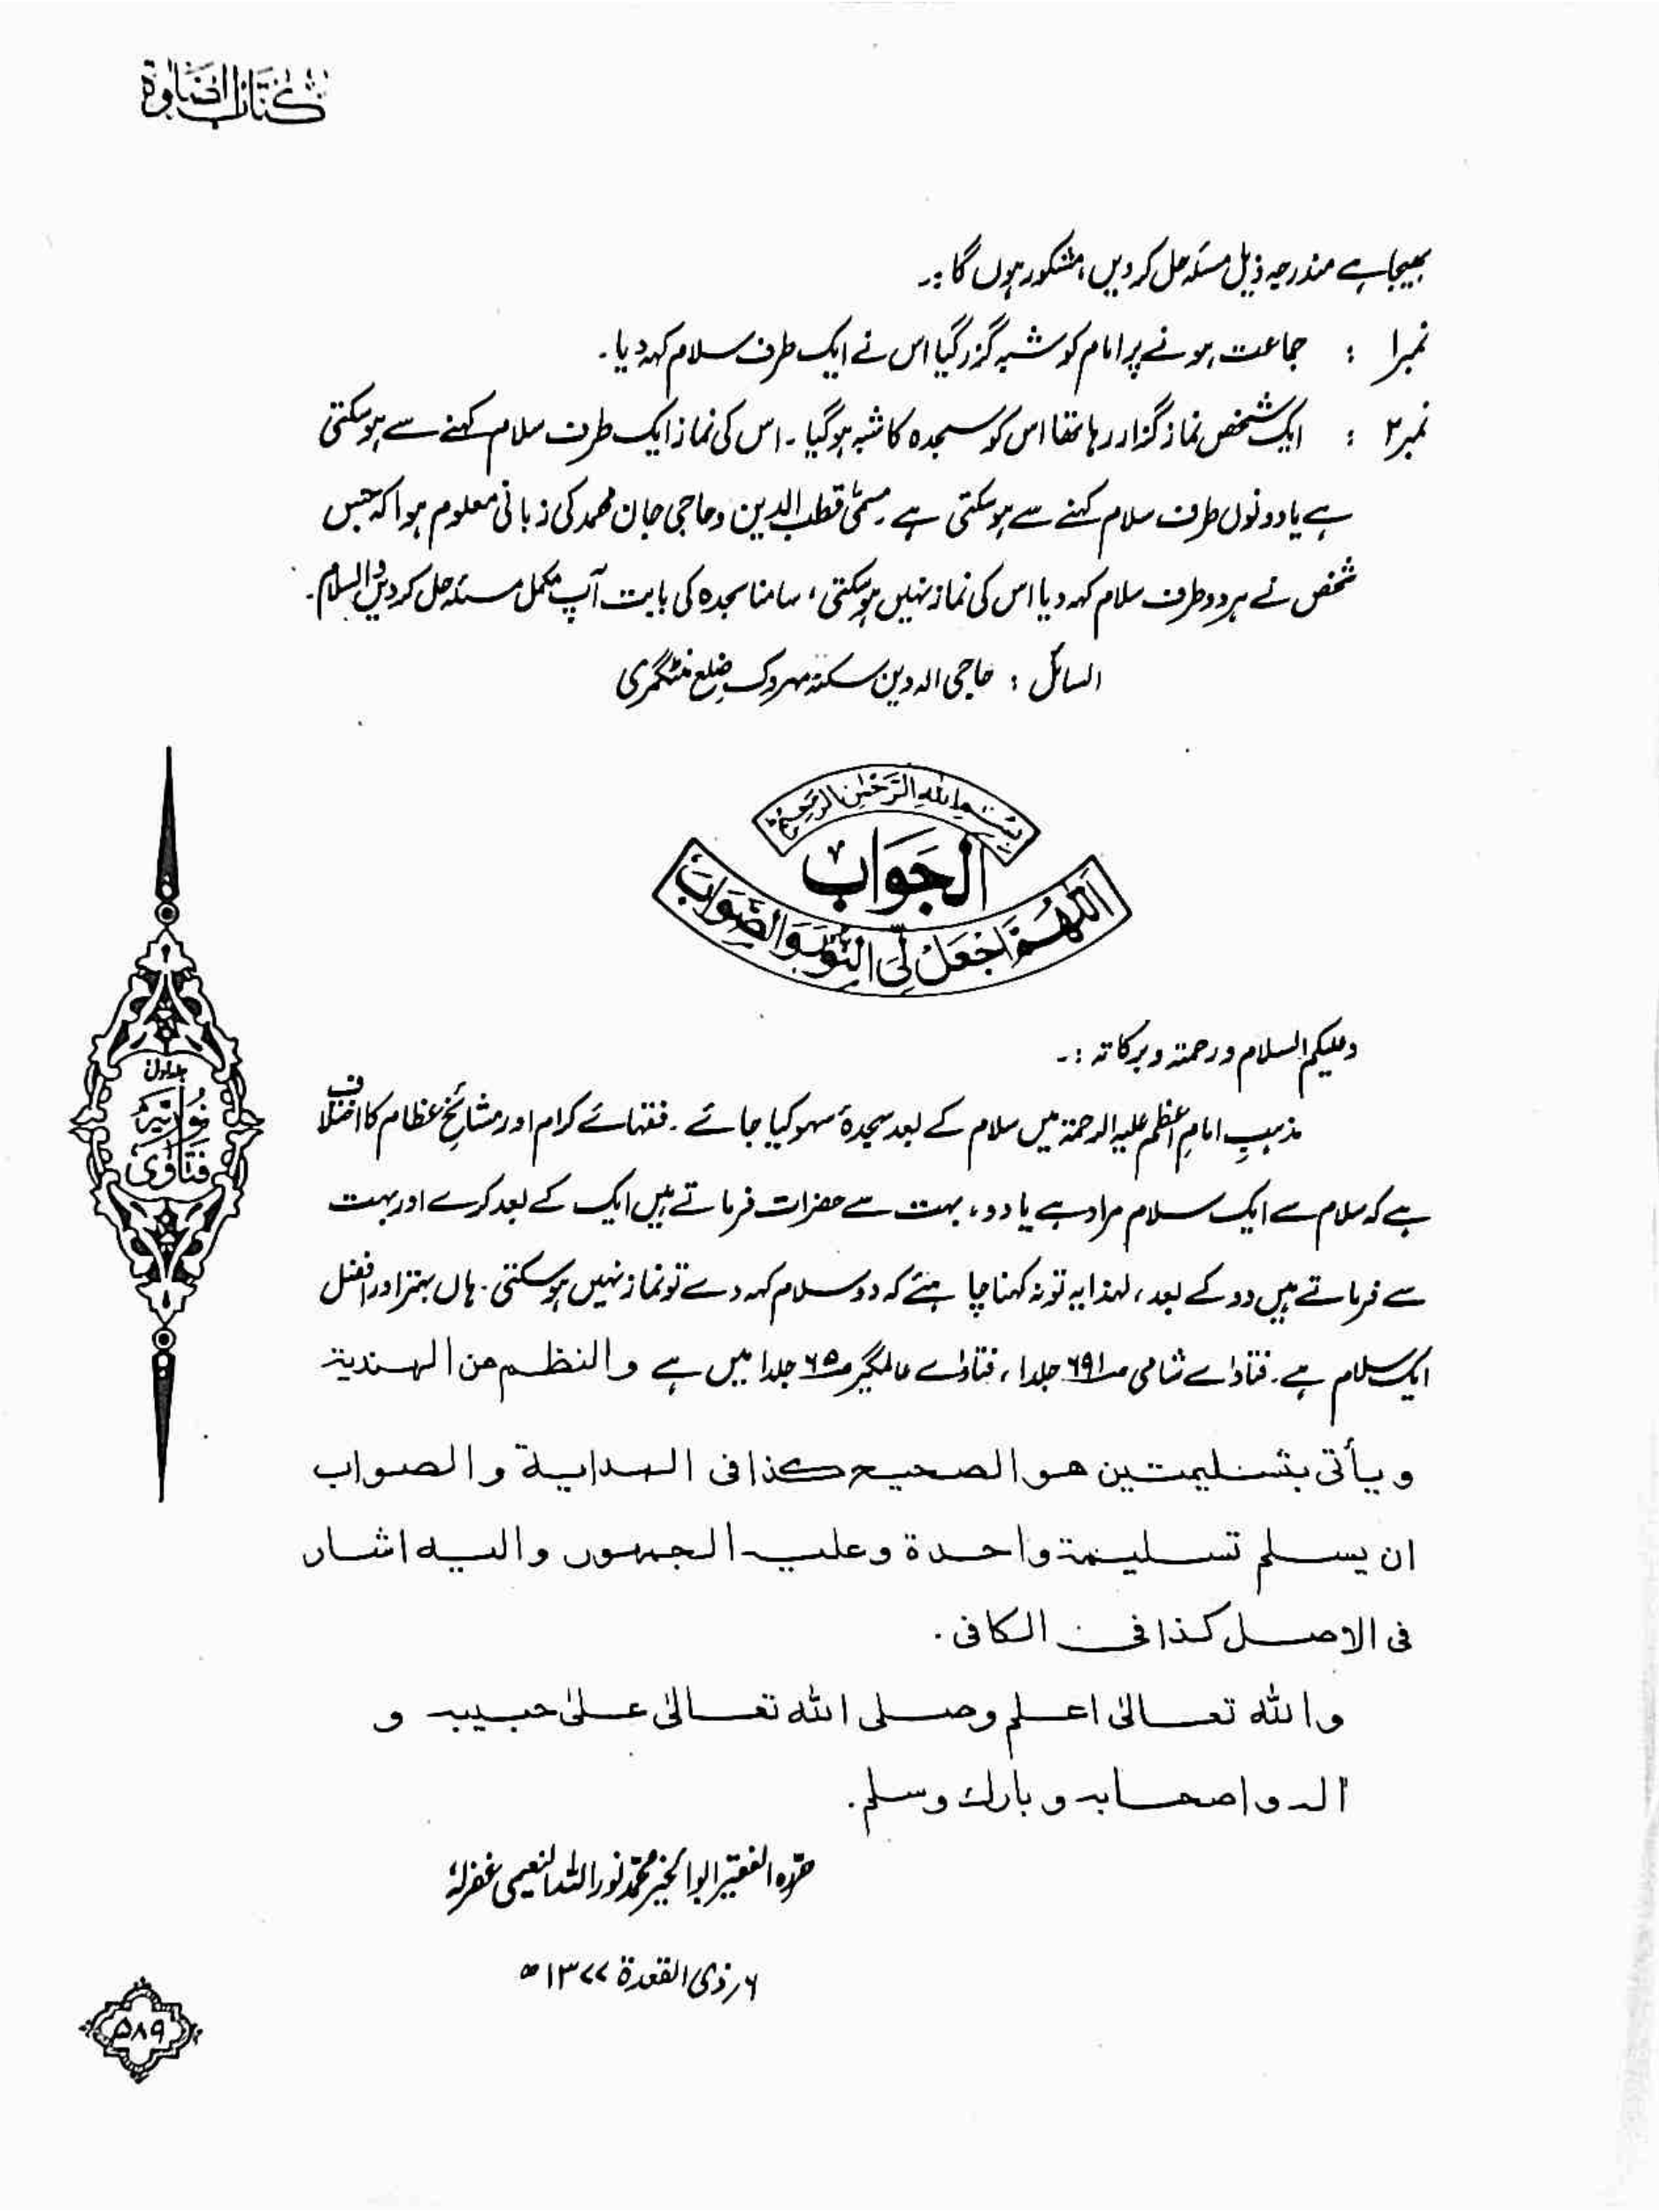 كتاب الصلوة
بھیجا ہے مندرجہ ذیل مسئلہ حل کر دیں، مشکور ہوں گا :۔
نمبر۱ : جماعت ہونے پر امام کو شبہ گزر گیا اس نے ایک طرف سلام کہہ دیا۔
نمبر۲ : ایک شخص نماز گزار رہا تھا اس کو سجدہ کا شبہ ہو گیا۔ اس کی نماز ایک طرف سلام کہنے سے ہو سکتی
ہے یا دونوں طرف سلام کہنے سے ہو سکتی ہے۔ مسمّٰی قطب الدین و حاجی جان محمد کی زبانی معلوم ہوا کہ جس
شخص نے ہر دو طرف سلام کہہ دیا اس کی نماز نہیں ہو سکتی، سامنا سجدہ کی بابت آپ مکمل مسئلہ حل کر دیں والسلام۔
السائل : حاجی الہ دین سکنہ مہروک ضلع منٹگمری
بسم الله الرحمٰن الرحيم
الجواب
اللهم اجعل لي النور والصواب
وعلیکم السلام ورحمتہ وبرکاتہ :۔
مذہبِ امامِ اعظم علیہ الرحمۃ میں سلام کے بعد سجدۂ سہو کیا جائے۔ فقہائے کرام اور مشائخ عظام کا اختلاف
ہے کہ سلام سے ایک سلام مراد ہے یا دو، بہت سے حضرات فرماتے ہیں ایک کے بعد کرے اور بہت
سے فرماتے ہیں دو کے بعد، لہٰذا یہ تو نہ کہنا چاہئے کہ دو سلام کہہ دے تو نماز نہیں ہو سکتی۔ ہاں بہتر اور افضل
ایک سلام ہے۔ فتاوٰے شامی ص۶۹۱ جلد۱، فتاوٰے عالمگیر ص۶۵ جلد۱ میں ہے والنظم من الهندية
ويأتى بتسليمتين هو الصحيح كذا فى الهداية والصواب
ان يسلم تسليمة واحدة وعليه الجمهور واليه اشار
فى الاصل كذا فى الكافى.
والله تعالىٰ اعلم وصلى الله تعالىٰ علىٰ حبيبه و
اله واصحابه وبارك وسلم.
حرّرہ الفقیر ابوالخیر محمّد نوراللہ النعیمی غفرلہٗ
۶ ذی القعدة ۱۳۷۷ ھ
جلد اول
نوریّہ
فتاوٰی
۵۸۹